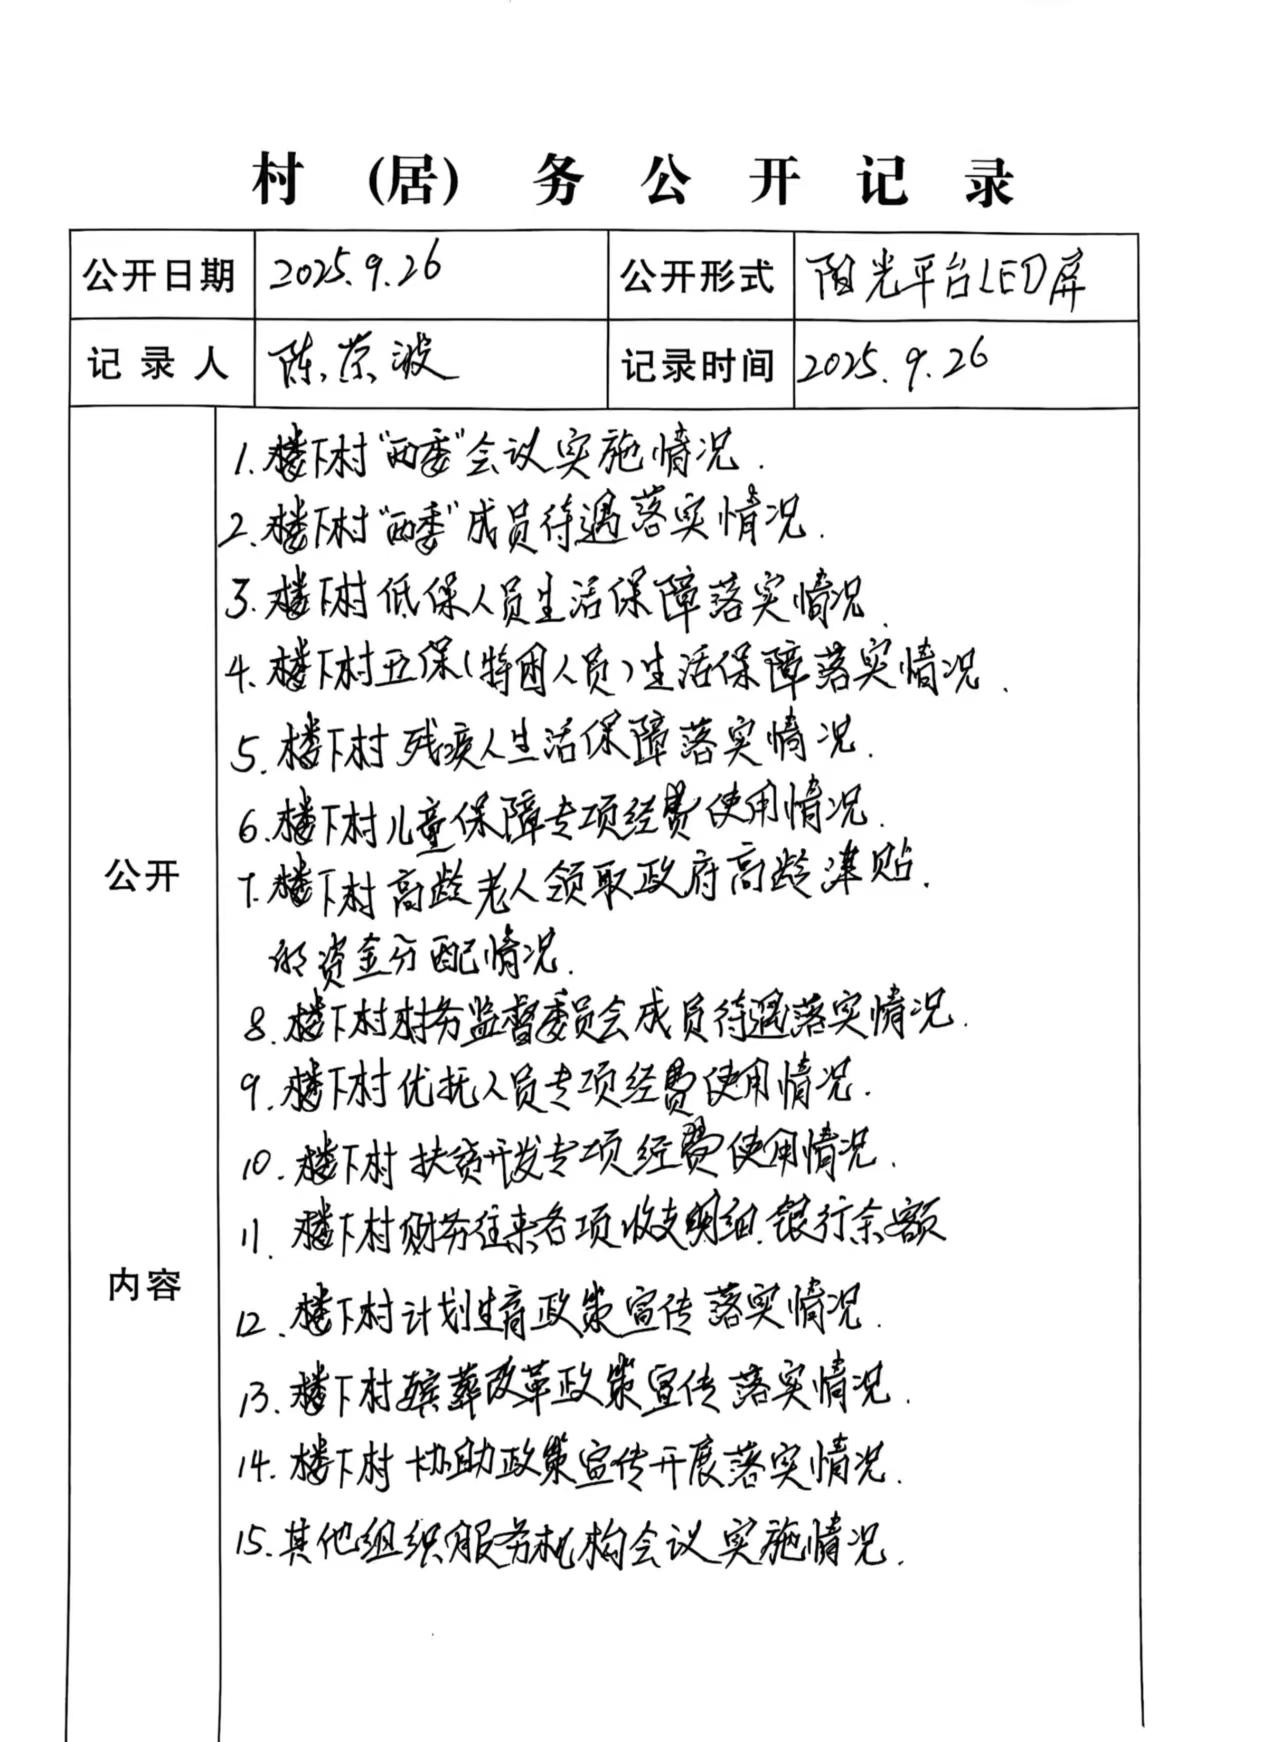 村 (居) 务 公 开 记 录
公开日期 2025.9.26 公开形式 阳光平台LED屏
记录人 陈荣波 记录时间 2025.9.26
公开内容
1.楼下村“两委”会议实施情况.
2.楼下村“两委”成员待遇落实情况.
3.楼下村低保人员生活保障落实情况.
4.楼下村五保(特困人员)生活保障落实情况.
5.楼下村残疾人生活保障落实情况.
6.楼下村儿童保障专项经费使用情况.
7.楼下村高龄老人领取政府高龄津贴.
的资金分配情况.
8.楼下村村务监督委员会成员待遇落实情况.
9.楼下村优抚人员专项经费使用情况.
10.楼下村扶贫开发专项经费使用情况.
11.楼下村财务往来各项收支明细.银行余额
12.楼下村计划生育政策宣传落实情况.
13.楼下村殡葬改革政策宣传落实情况.
14.楼下村协助政策宣传开展落实情况.
15.其他组织服务机构会议实施情况.